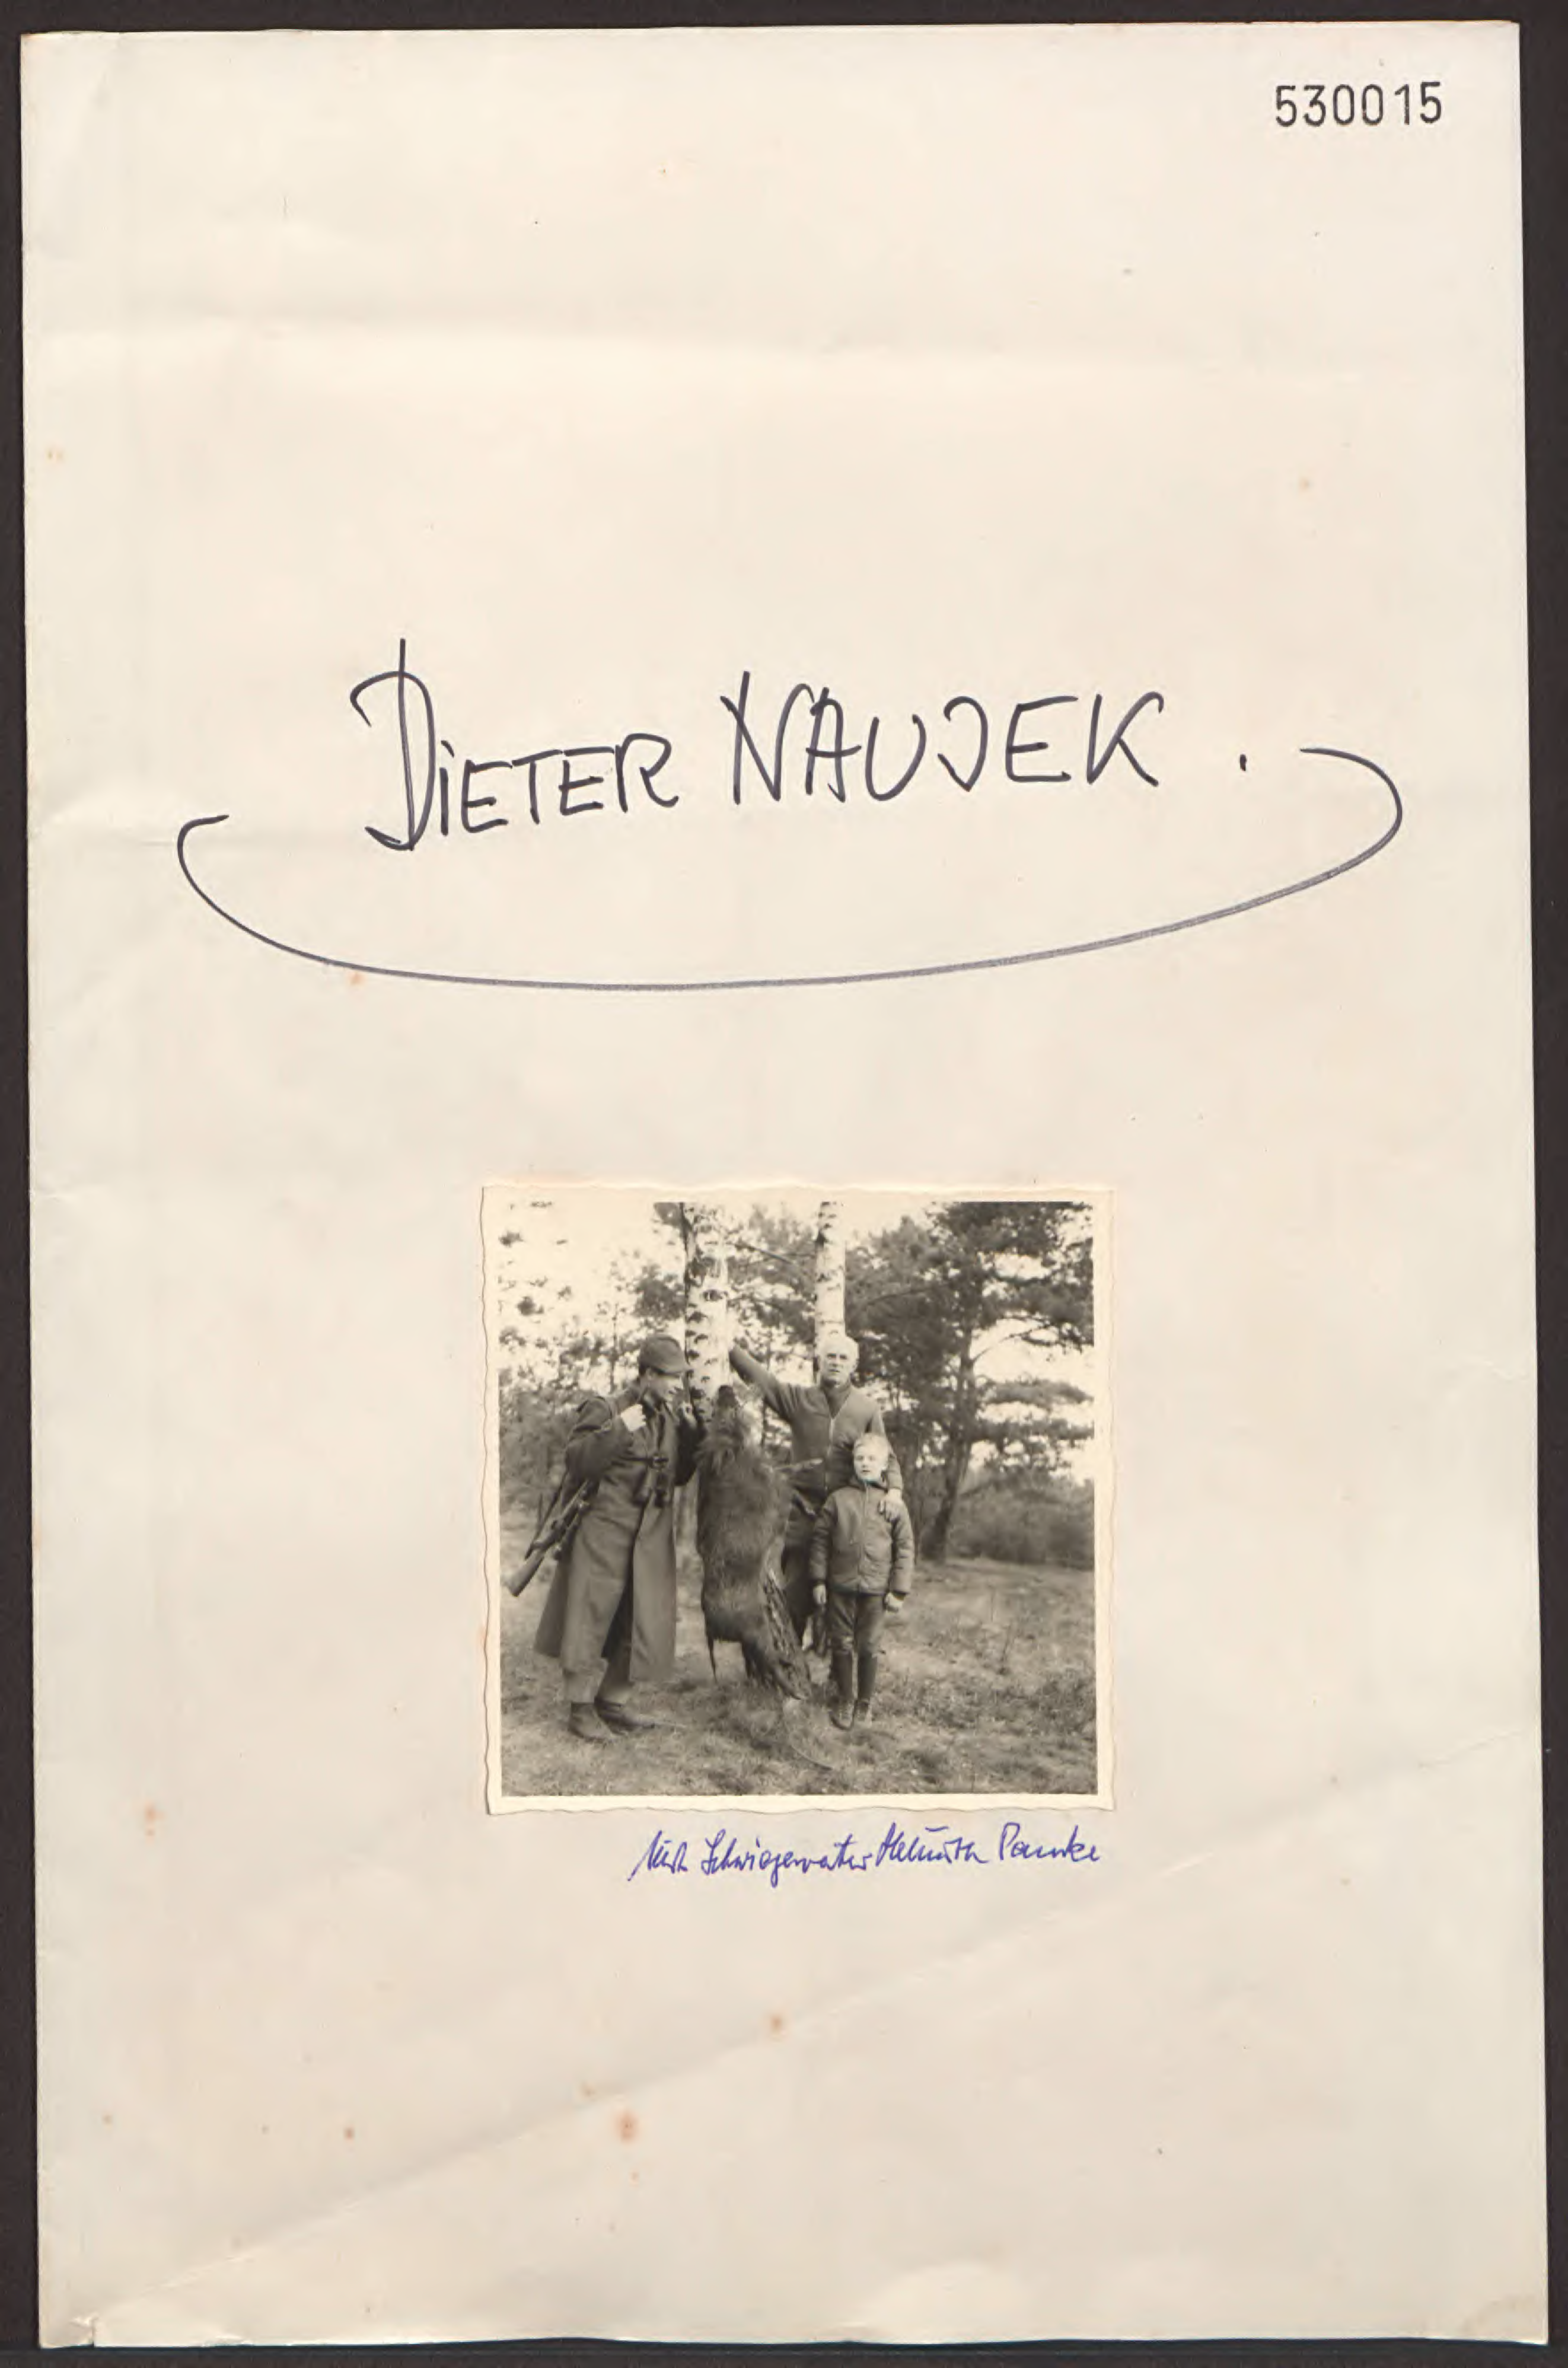 530015
DiETER NAUJEK.
Mit Schwiegervater Helmuth Pamke